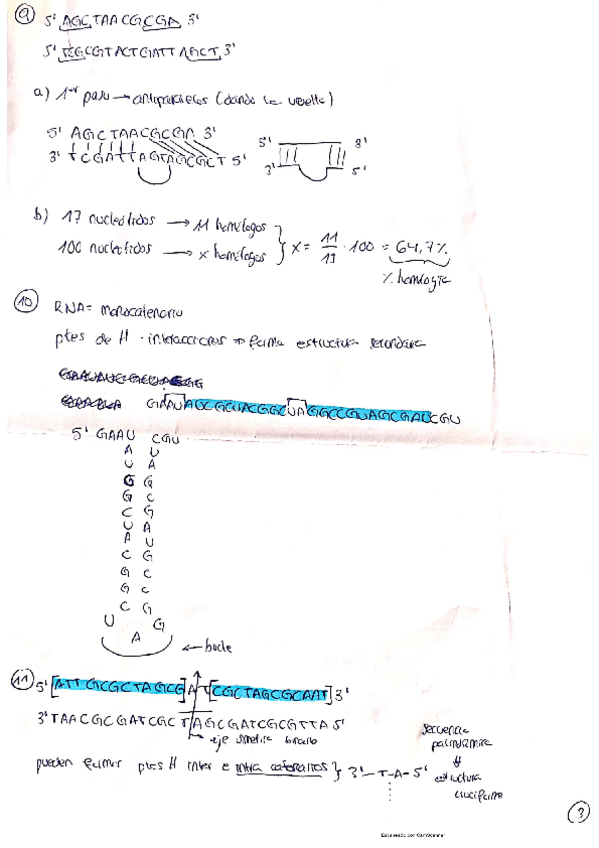 9 5' AGCTAACGCGA 3'
5' TCGCGTACTGATTAGCT 3'
a) 1er paso → antiparalelas (dando la vuelta)
5' AGCTAACGCGA 3'
3' TCGATTAGTAGCGCT 5'
5' 3'
3' 5'
b) 17 nucleótidos → 11 homólogos
100 nucleótidos → x homólogos
x = 11/17 · 100 = 64,7%
% homología
10 RNA = monocatenario
ptes de H · interacciones → forma estructura secundaria
GAAUAUCGCUACGGCUAGGCCGUAGCGAUCGU
5' GAAU CGU
A U
U A
G G
G C
C G
U A
A U
C G
G C
G C
C G
U G
A
← bucle
11 5' [ATTGCGCTAGCG]AT[CGCTAGCGCAAT] 3'
3' TAACGCGATCGCTAGCGATCGCGTTA 5'
eje simetría
pueden formar ptes H inter e intra catenarios } 3'—T-A-5'
secuencia
palindrómica
estructura
cruciforme
3
Escaneado con CamScanner